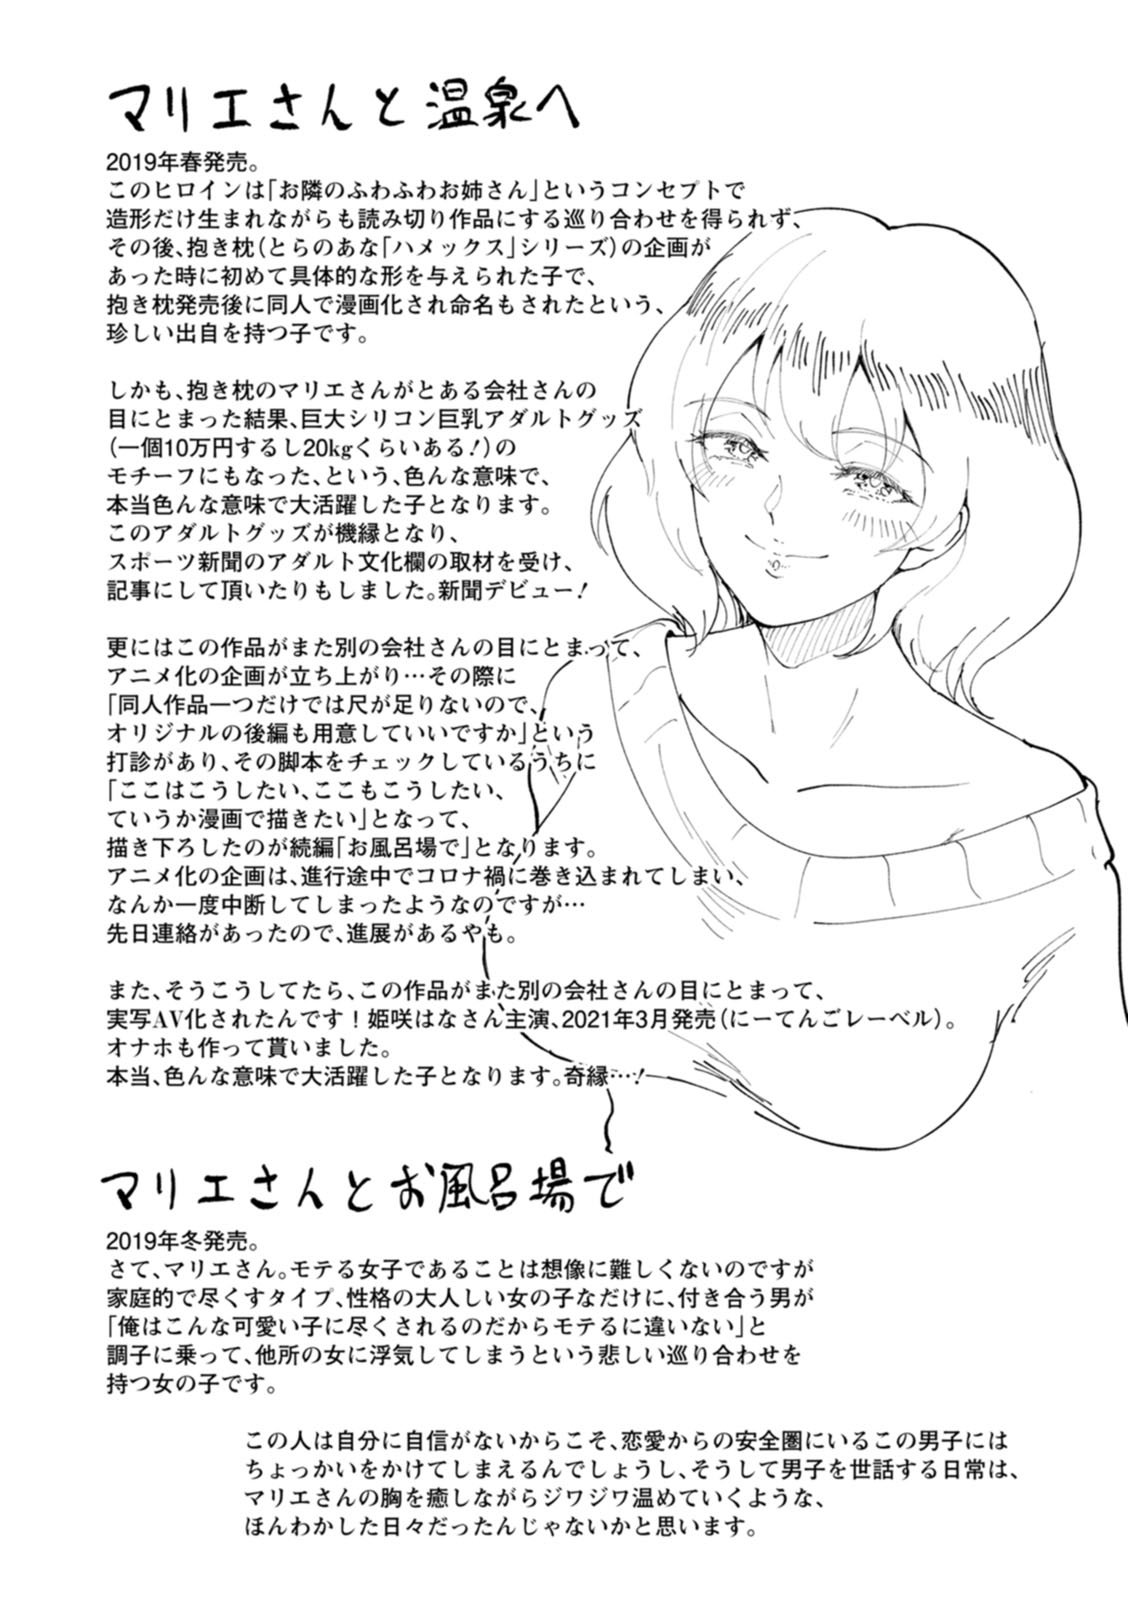 マリエさんと温泉へ
2019年春発売。
このヒロインは「お隣のふわふわお姉さん」というコンセプトで
造形だけ生まれながらも読み切り作品にする巡り合わせを得られず、
その後、抱き枕(とらのあな「ハメックス」シリーズ)の企画が
あった時に初めて具体的な形を与えられた子で、
抱き枕発売後に同人で漫画化され命名もされたという、
珍しい出自を持つ子です。
しかも、抱き枕のマリエさんがとある会社さんの
目にとまった結果、巨大シリコン巨乳アダルトグッズ
(一個10万円するし20kgくらいある!)の
モチーフにもなった、という、色んな意味で、
本当色んな意味で大活躍した子となります。
このアダルトグッズが機縁となり、
スポーツ新聞のアダルト文化欄の取材を受け、
記事にして頂いたりもしました。新聞デビュー!
更にはこの作品がまた別の会社さんの目にとまって、
アニメ化の企画が立ち上がり…その際に
「同人作品一つだけでは尺が足りないので、
オリジナルの後編も用意していいですか」という
打診があり、その脚本をチェックしているうちに
「ここはこうしたい、ここもこうしたい、
ていうか漫画で描きたい」となって、
描き下ろしたのが続編「お風呂場で」となります。
アニメ化の企画は、進行途中でコロナ禍に巻き込まれてしまい、
なんか一度中断してしまったようなのですが…
先日連絡があったので、進展があるやも。
また、そうこうしてたら、この作品がまた別の会社さんの目にとまって、
実写AV化されたんです!姫咲はなさん主演、2021年3月発売(にーてんごレーベル)。
オナホも作って貰いました。
本当、色んな意味で大活躍した子となります。奇縁…!
マリエさんとお風呂場で
2019年冬発売。
さて、マリエさん。モテる女子であることは想像に難しくないのですが
家庭的で尽くすタイプ、性格の大人しい女の子なだけに、付き合う男が
「俺はこんな可愛い子に尽くされるのだからモテるに違いない」と
調子に乗って、他所の女に浮気してしまうという悲しい巡り合わせを
持つ女の子です。
この人は自分に自信がないからこそ、恋愛からの安全圏にいるこの男子には
ちょっかいをかけてしまえるんでしょうし、そうして男子を世話する日常は、
マリエさんの胸を癒しながらジワジワ温めていくような、
ほんわかした日々だったんじゃないかと思います。